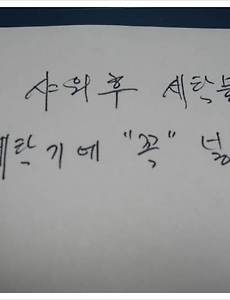 샤워후 세탁물
세탁기에 "꼭" 넣